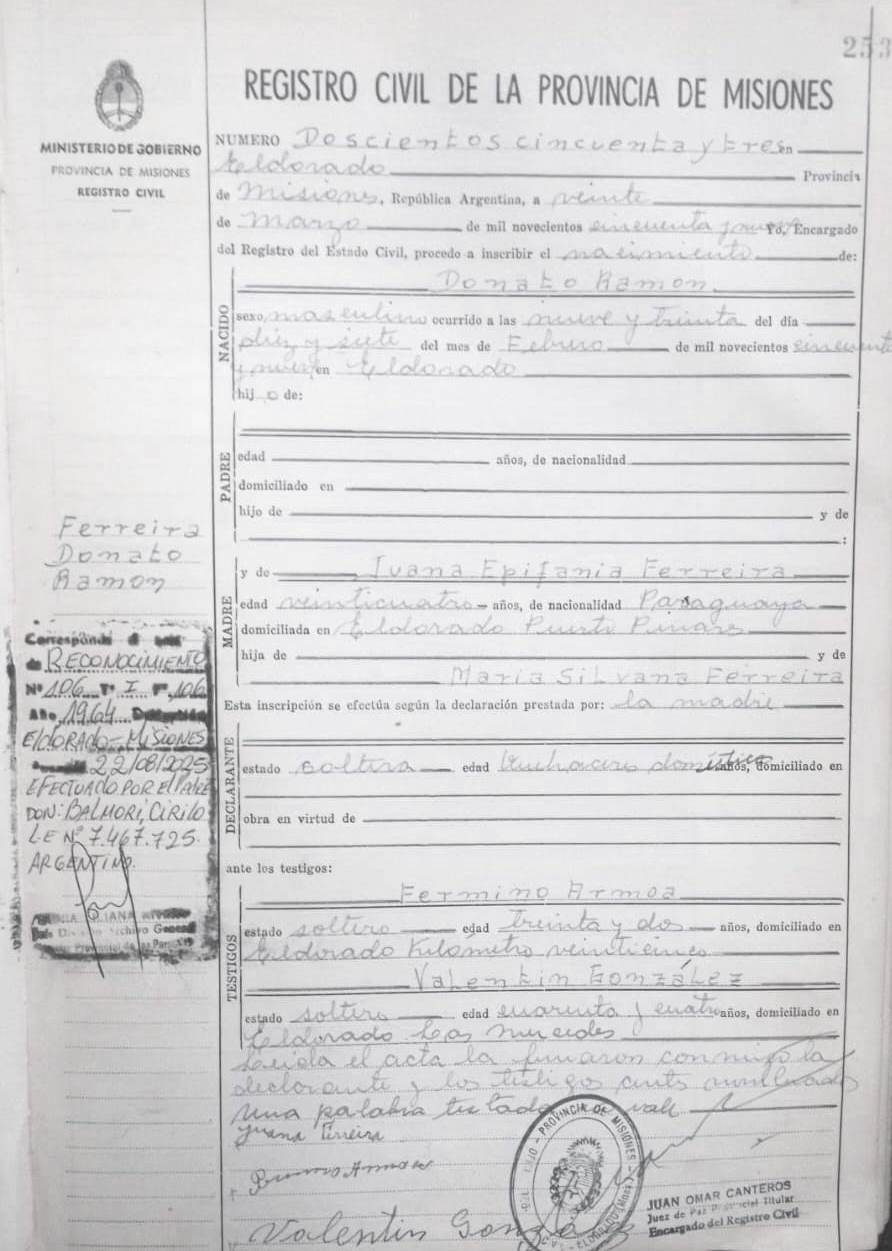 253
REGISTRO CIVIL DE LA PROVINCIA DE MISIONES
MINISTERIO DE GOBIERNO
PROVINCIA DE MISIONES
REGISTRO CIVIL
NUMERO Doscientos cincuenta y tres en
Eldorado Provincia
de Misiones, República Argentina, a veinte
de Marzo de mil novecientos cincuenta y nueve Yo, Encargado
del Registro del Estado Civil, procedo a inscribir el nacimiento de:
NACIDO
Donato Ramon
sexo, masculino ocurrido a las nueve y treinta del día
diez y siete del mes de Febrero de mil novecientos cincuenta
y nueve en Eldorado
hijo de:
PADRE
edad años, de nacionalidad
domiciliado en
hijo de y de
:
Ferreira
Donato
Ramon
MADRE
y de Juana Epifania Ferreira
edad veinticuatro años, de nacionalidad Paraguaya
domiciliada en Eldorado Puerto Pinares
hija de y de
Maria Silvana Ferreira
Corresponde a
RECONOCIMIENTO
Nº 106 Tº I Fº 106
Año 1964
ELDORADO - MISIONES
22/08/2025
EFECTUADO POR EL PADRE
DON: BALMORI, CIRILO
L.E Nº 7.467.725.
ARGENTINO.
Archivo General
Esta inscripción se efectúa según la declaración prestada por: la madre
DECLARANTE
estado soltera edad Quehaceres domésticos años, domiciliado en
obra en virtud de
ante los testigos:
TESTIGOS
Fermino Armoa
estado soltero edad treinta y dos años, domiciliado en
Eldorado Kilómetro veinticinco
Valentin González
estado soltero edad cuarenta y cuatro años, domiciliado en
Eldorado Las Mercedes
Leida el acta la firmaron conmigo la
declarante y los testigos ante nombrados
una palabra testada no vale
Juana Ferreira
Armoa
Valentin
PROVINCIA DE MISIONES
ELDORADO (Mnes)
JUAN OMAR CANTEROS
Juez de Paz Provincial Titular
Encargado del Registro Civil